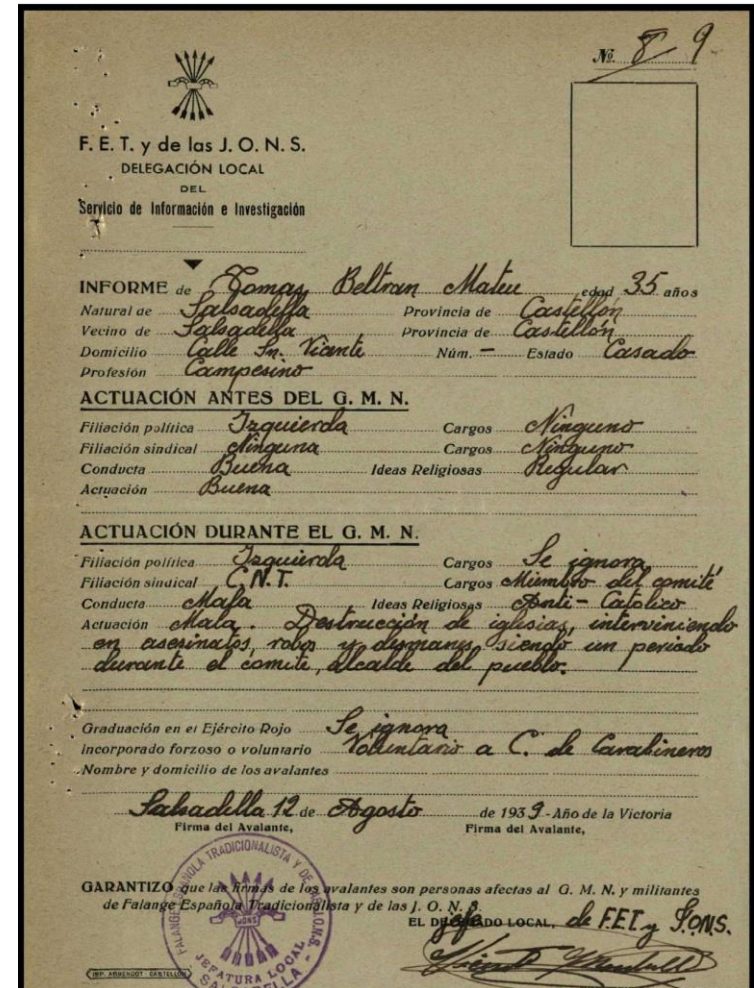 Nº. 8 9
F. E. T. y de las J. O. N. S.
DELEGACIÓN LOCAL
DEL
Servicio de Información e Investigación
INFORME de Tomas Beltran Mateu edad 35 años
Natural de Salsadella Provincia de Castellón
Vecino de Salsadella Provincia de Castellón
Domicilio Calle Sn. Vicente Núm. – Estado Casado
Profesión Campesino
ACTUACIÓN ANTES DEL G. M. N.
Filiación política Izquierda Cargos Ninguno
Filiación sindical Ninguna Cargos Ninguno
Conducta Buena Ideas Religiosas Regular
Actuación Buena
ACTUACIÓN DURANTE EL G. M. N.
Filiación política Izquierda Cargos Se ignora
Filiación sindical C.N.T. Cargos Miembro del comité
Conducta Mala Ideas Religiosas Anti-Catolico
Actuación Mala. Destrucción de iglesias, interviniendo
en asesinatos, robos y desmanes, siendo un periado
durante el comite, alcalde del pueblo.
Graduación en el Ejército Rojo Se ignora
Incorporado forzoso o voluntario Voluntario a C. de Carabineros
Nombre y domicilio de los avalantes
Salsadella 12 de Agosto de 1939 - Año de la Victoria
Firma del Avalante, Firma del Avalante,
GARANTIZO que las firmas de los avalantes son personas afectas al G. M. N. y militantes
de Falange Española Tradicionalista y de las J. O. N. S.
EL DELEGADO LOCAL, jefe de F.E.T y J.O.N.S.
FALANGE ESPAÑOLA TRADICIONALISTA Y DE LAS J.O.N.S.
JONS
JEFATURA LOCAL
SALSADELLA
IMP. ARMENGOT - CASTELLÓN